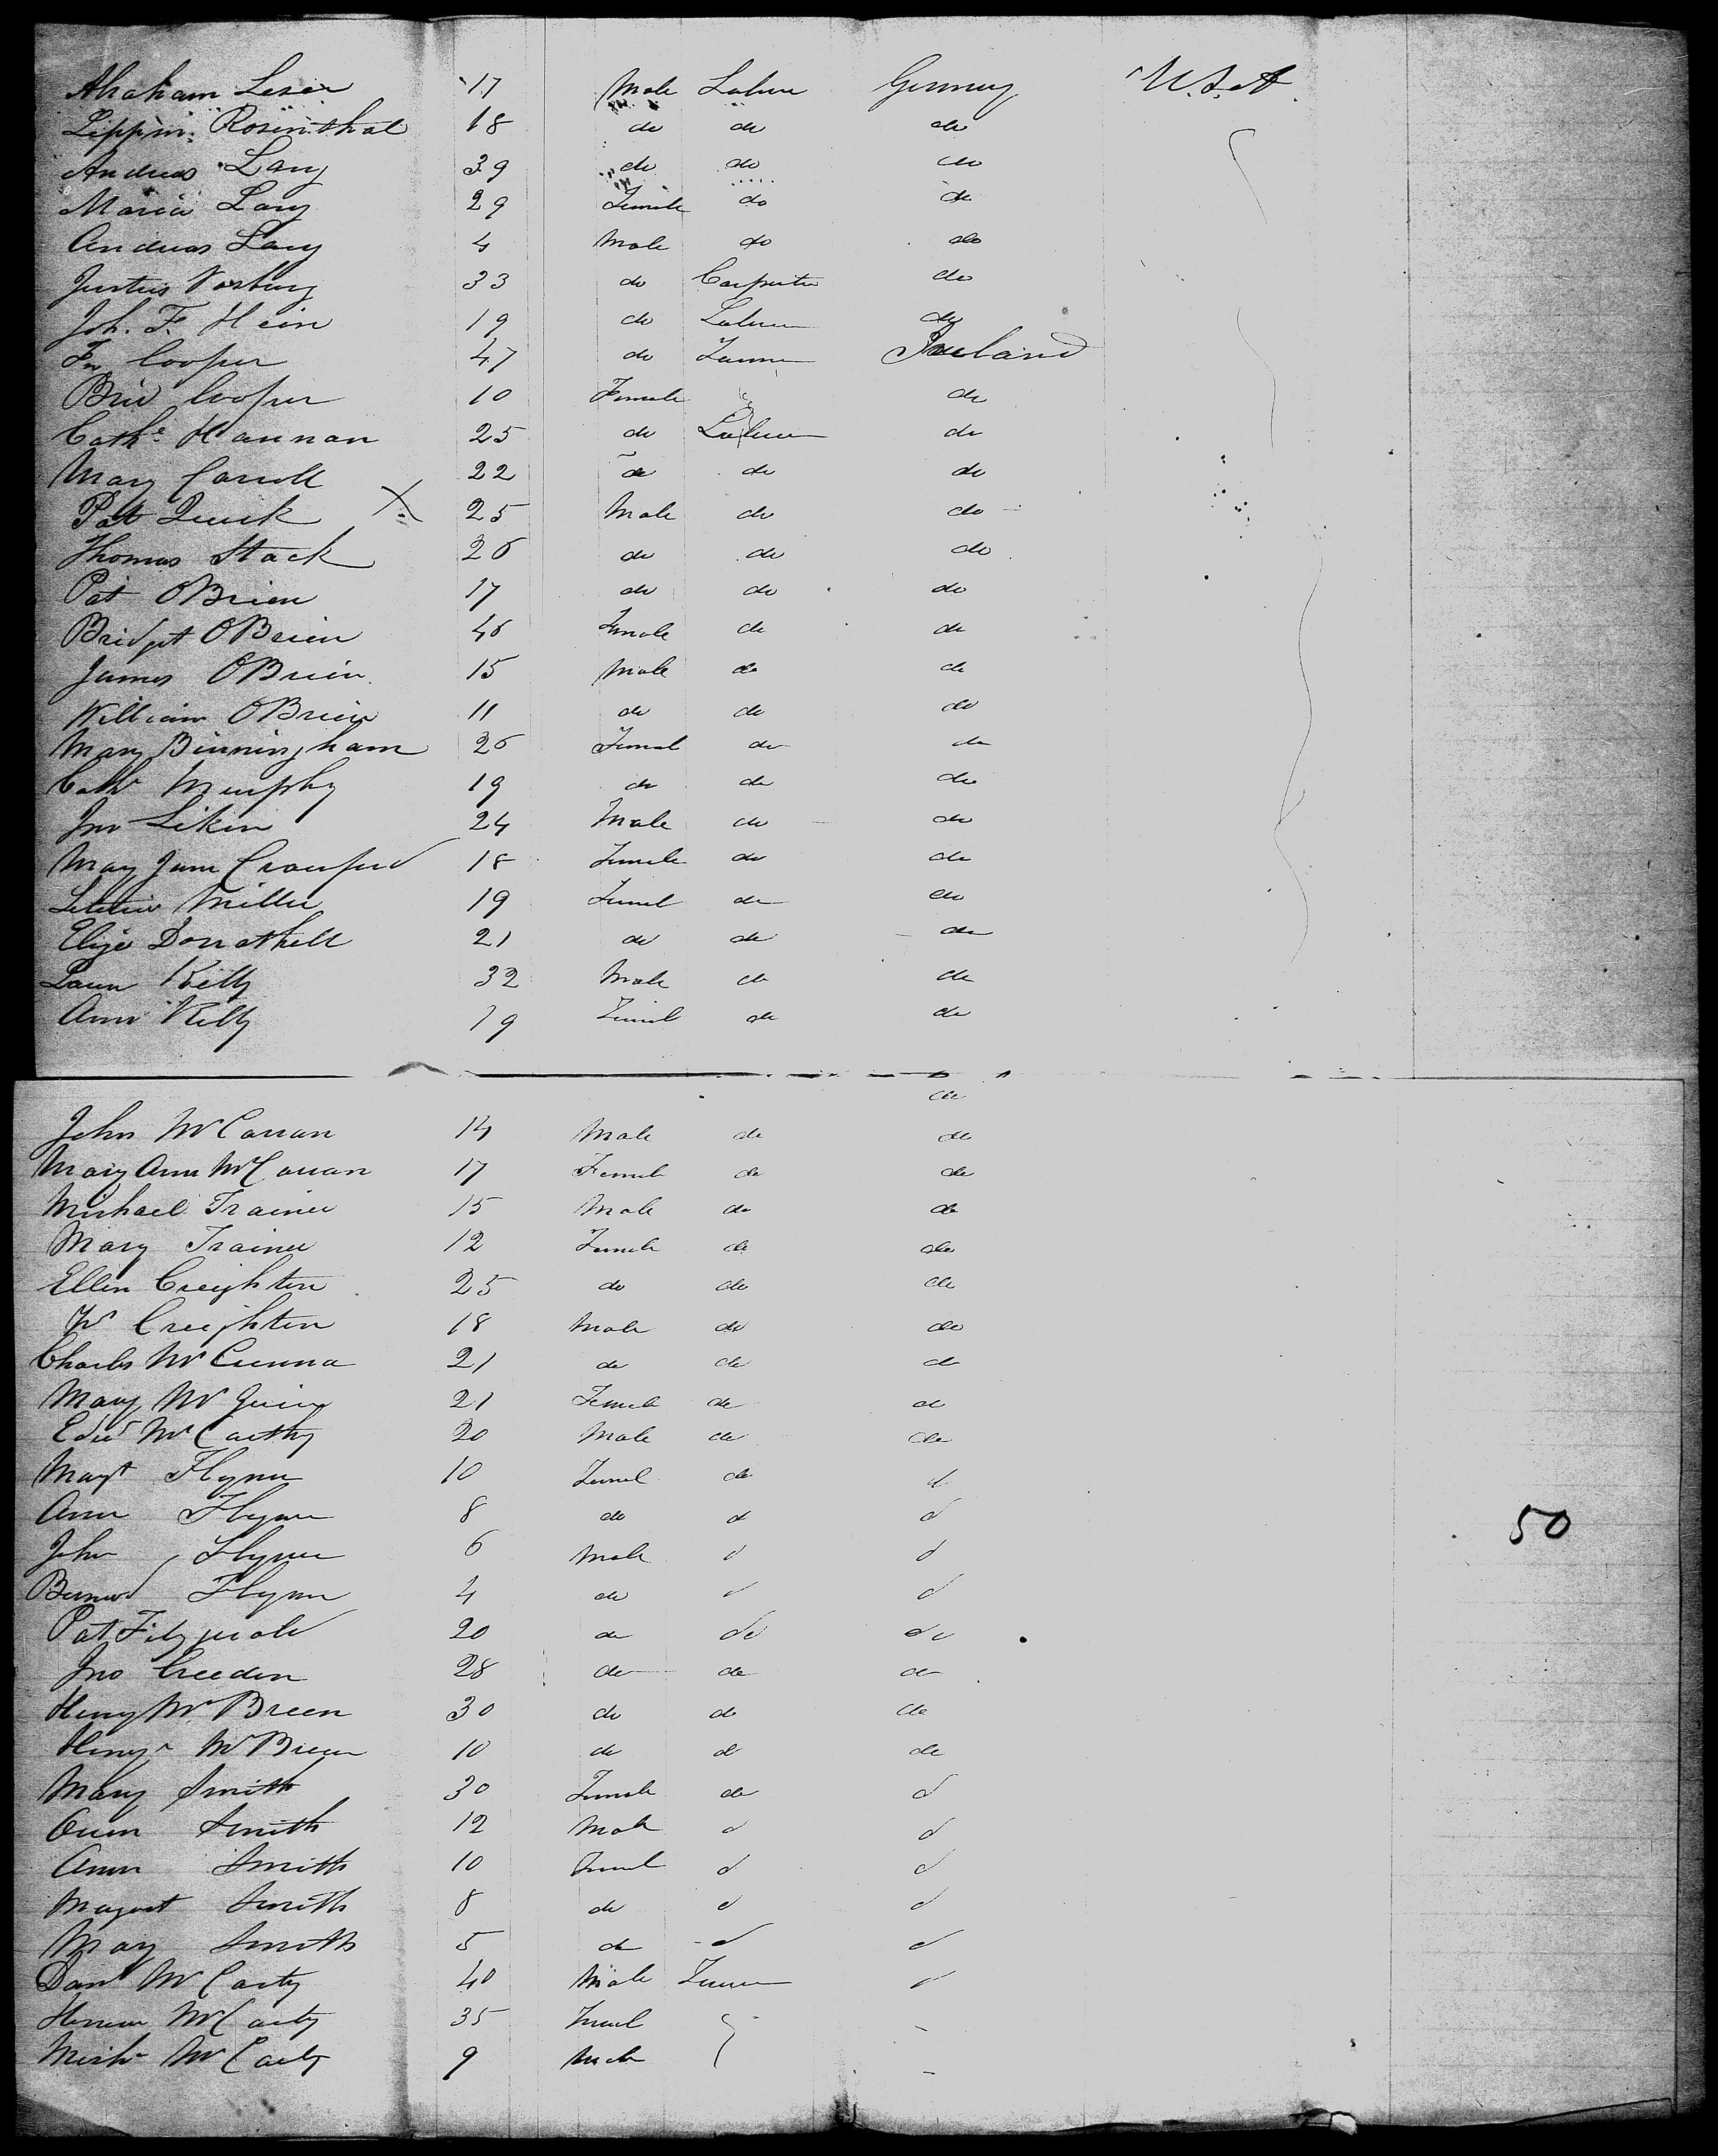 Abraham Leser 17 Male Labour Germany U.S.A.
Rosenthal 18 do do do
Andreas Lang 39 do do do
Maria Lang 29 Female do do
Andreas Lang 4 Male do do
Justus 33 do Carpenter do
Joh. F. Hein 19 do Labour do
Cooper 47 do Farmer Ireland
Brid Cooper 10 Female do
Cathe Hannan 25 do Labour do
Mary Carroll 22 do do do
Pat Quirk X 25 Male do do
Thomas Stack 26 do do do
Pat OBrien 17 do do do
Bridget OBrien 46 Female do do
James OBrien 15 Male do do
William OBrien 11 do do do
Mary Birmingham 26 Femal do do
Cath Murphy 19 do do do
Jno Liken 24 Male do do
Mary Jane Crawford 18 Female do do
Letitia Miller 19 Femal do do
Eliza 21 do do do
Kelly 32 Male do do
Ann Kelly 19 Femal do do
do
John McCarran 14 Male do do
Mary Ann McCarran 17 Female do do
Michael Trainer 15 Male do do
Mary Trainer 12 Female do do
Ellen Creighton 25 do do do
Wm Creighton 18 Male do do
Charles McCunna 21 do do do
Mary 21 Female do do
Edwd McCarthy 20 Male do do
Magt Flynn 10 Femal do d
Ann Flynn 8 do d d
John Flynn 6 Male d d
50
Bernard Flynn 4 do d d
Pat Fitzgerald 20 do do do
Jno Creedon 28 do do do
Henry McBreen 30 do do do
Henry McBreen 10 do d do
Mary Smith 30 Female do d
Owen Smith 12 Male d d
Ann Smith 10 Femal d d
Margaret Smith 8 do d d
Mary Smith 5 do d d
Danl McCarty 40 Male Farmer d
McCarty 35 Femal
Michl McCarty 9 Male